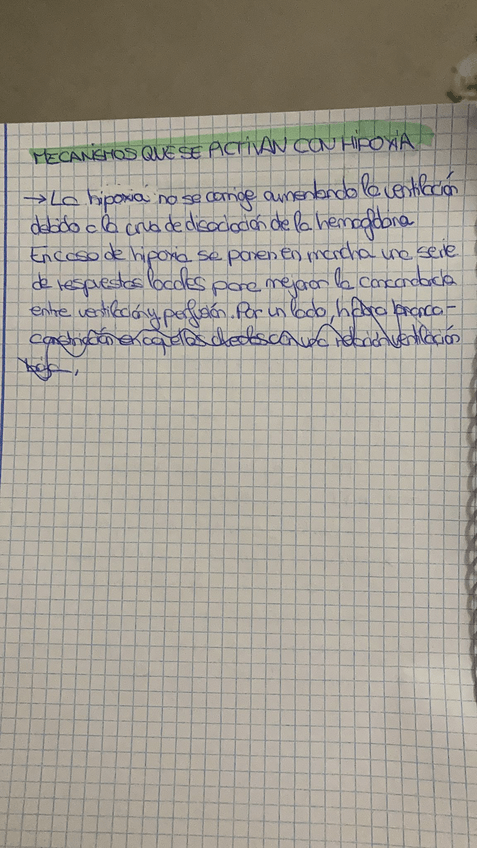 MECANISMOS QUE SE ACTIVAN CON HIPOXIA
→ La hipoxia no se corrige aumentando la ventilación
debido a la curva de disociación de la hemoglobina
En caso de hipoxia se ponen en marcha una serie
de respuestas locales para mejorar la concordancia
entre ventilación y perfusión. Por un lado, habra bronco-
constricción en aquellos alveolos con una relación ventilación
baja,